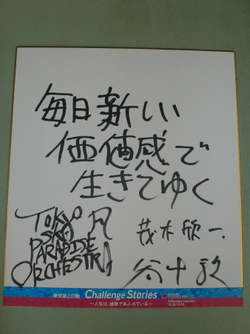 毎日新しい
価値感で
生きてゆく
TOKYO
SKA
PARADISE
ORCHESTRA
茂木欣一
谷中敦
東京海上日動 Challenge Stories
～人生は、挑戦であふれている～